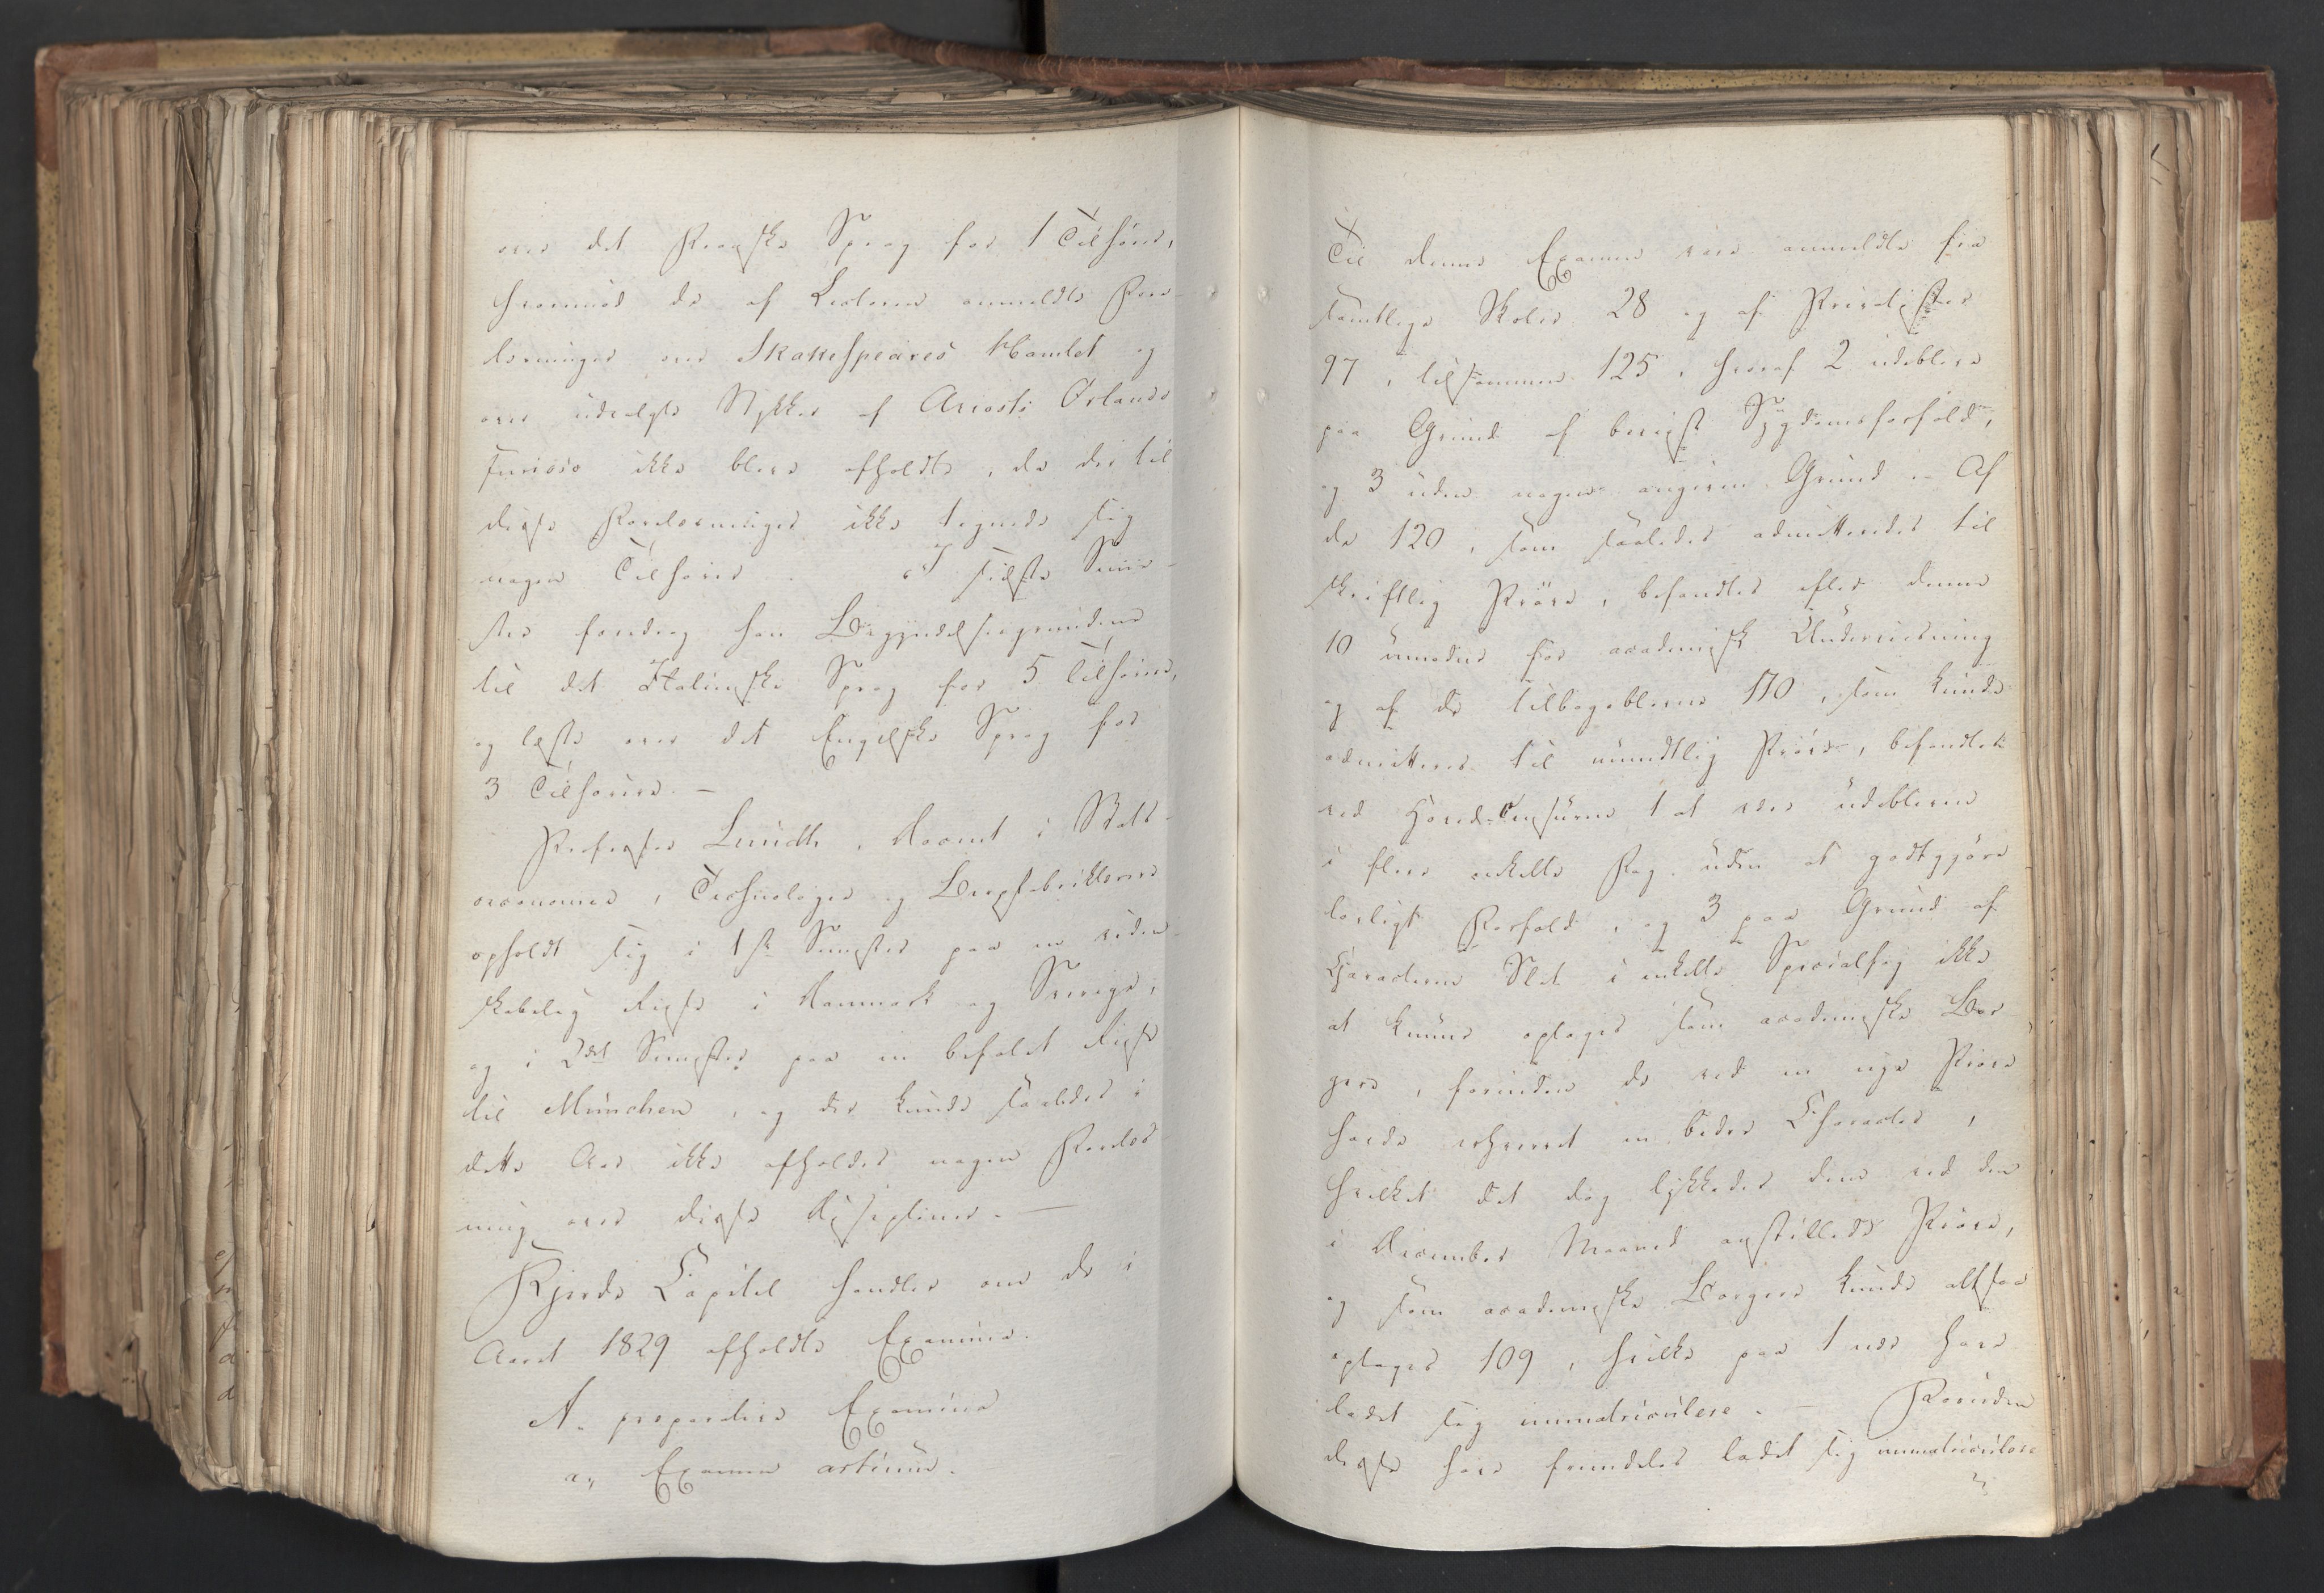 over det Franske Sprog for 1 Tilhører,
hvorimod de af Lectoren anmeldte Fore-
læsninger over Skakespeares Hamlet og
over udvalgte Stykker af Ariosts Orlando
furioso ikke bleve afholdte, da der til
disse Forelæsninger ikke tegnede sig
nogen Tilhører. I sidste Seme-
ster foredrog han Begyndelsesgrundene
til det Italienske Sprog for 5 Tilhørere,
og læste over det Engelske Sprog for
3 Tilhørere. —
Professor Lundh, Docent i Stats-
oeconomie, Technologie og Bergfabriklære
opholdt sig i 1ste Semester paa en viden-
skabelig Reise i Danmark og Sverige,
og i 2det Semester paa en befalet Reise
til München, og der kunde saaledes i
dette Aar ikke afholdes nogen Forelæs
ning over disse Disipliner. —
Fjerde Capitel handler om de i
Aaret 1829 afholdte Examina.
A. præparative Examina
a, Examen artium.
Til denne Examen vare anmeldte fra
samtlige Skoler 28 og af Privatister
97, tilsammen 125, hvoraf 2 udebleve
paa Grund af beviist Sygdomsforfald,
og 3 uden nogen angiven Grund. – Af
de 120, som saaledes admitteredes til
skriftlig Prøve, befandtes efter denne
10 umodne for academisk Underviisning
og af de tilbageblevne 110, som kunde
admitteres til mundtlig Prøve, befandtes
ved Hoved-Censuren 1 at være udebleven
i flere enkelte Fag uden at godtgjøre
lovligt Forfald, og 3 paa Grund af
Characteren Slet i enkelte Specialfag ikke
at kunne optages som academiske Bor
gere, forinden de ved en nye Prøve
havde erhvervet en bedre Character,
hvilket det dog lykkedes dem ved den
i December Maaned anstillede Prøve,
og som academiske Borgere kunde altsaa
optages 109, hvilke paa 1 nær have
ladet sig immatriculere. — Foruden
disse have fremdeles ladet sig immatriculere